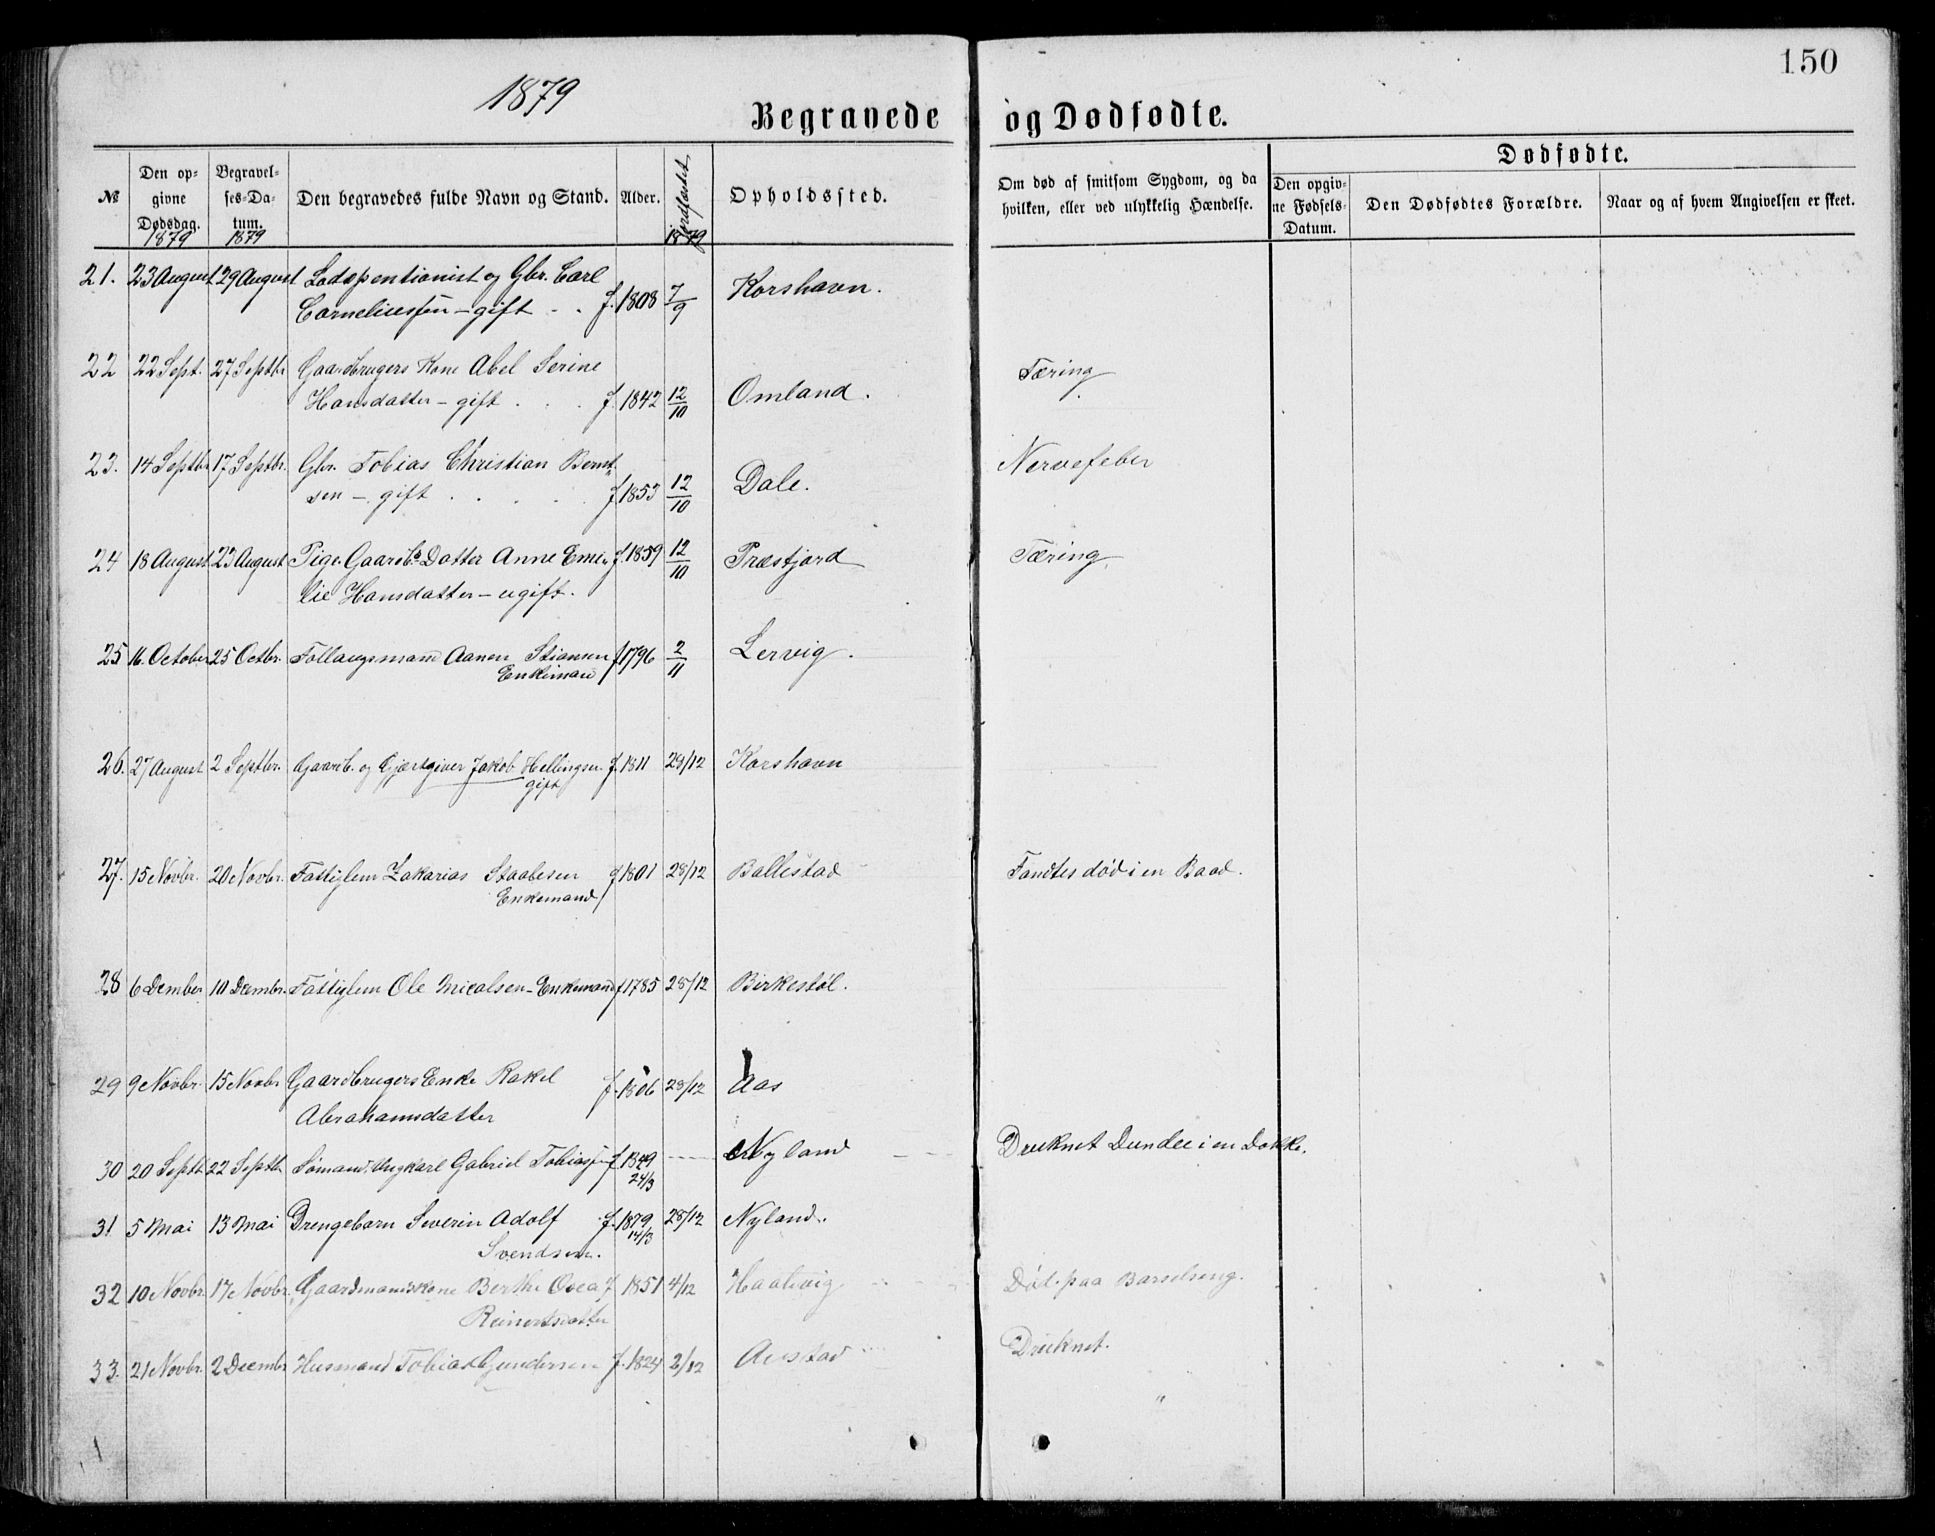 150
1879
Begravede og Dødfødte.
№ Den opgivne Dødsdag. 1879 Begravelses-Datum. 1879 Den begravedes fulde Navn og Stand. Alder. Jordfæstet 1879 Opholdssted. Om død af smitsom Sygdom, og da hvilken, eller ved ulykkelig Hændelse. Dødfødte. Den opgivne Fødsels-Datum. Den Dødfødtes Forældre. Naar og af hvem Angivelsen er skeet.
21. 23 August 29 August Lodspentionist og Gbr. Carl
Corneliussen – gift . . f. 1808 7/9 Korshavn.
22 22 Sept. 27 Septbr. Gaardbrugers Kone Abel Serine Tæring
Hansdatter – gift . . . f. 1842 12/10 Omland.
23. 14 Septbr. 17 Septbr. Gbr. Tobias Christian Bernt- Nervefeber
sen – gift . . . . f 1853 12/10 Dale.
24 18 August 23 August Pige. Gaardb. Datter Anne Emi- f. 1859 12/10 Præstjord Tæring
lie Hansdatter – ugift.
25 16. October 25 Octbr. Follaugsmand Aanen Stiansen f 1796 2/11 Lervig.
Enkemand
26. 27 August 2 Septbr. Gaardb. og Gjæstgiver Jakob Hellingsen. f. 1811 28/12 Korshavn
gift
27. 15 Novbr. 20 Novbr. Fattiglem Zakarias Staalesen f 1801 28/12 Ballestad Fandtes død i en Baad.
Enkemand
28 6 Dember 10 Dcembr. Fattiglem Ole Nicalsen – Enkemand f 1785 28/12 Birkestøl.
29 9 Novbr. 15 Novbr Gaardbrugers Enke Rakel f. 1806 28/12 Aas
Abrahamsdatter
30 20 Septb. 22 Septb. Sømand, Ungkarl Gabriel Tobiassen f. 1849 ---- Nyland Druknet Dundee i en Dokke.
24/3
31 5 Mai 13 Mai Drengebarn Severin Adolf f. 1879 28/12 Nyland.
14/3
Svendsen.
32 10 Novbr. 17 Novbr. Gaardmandskone Berthe Ovea f 1851 4/12 Haaløvig Død paa Barselseng.
Reinertsdatter
33. 21 Novbr. 2 Dcembr Husmand Tobias Gundersen f. 1824 2/12 Austad Druknet.